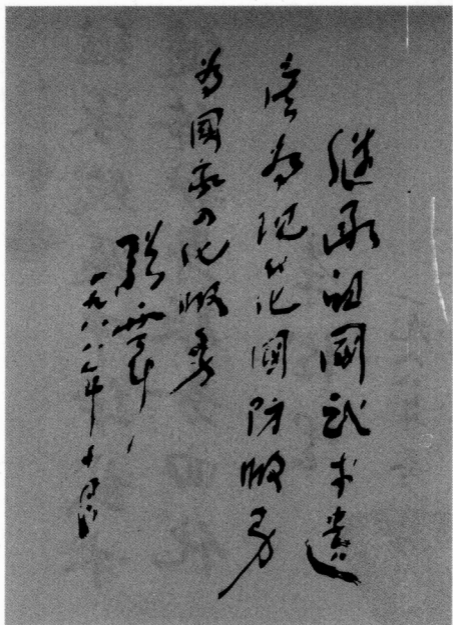 继承祖國武术遗
产为现代化國防服务
为國家四化服务
张震
一九八六年十月